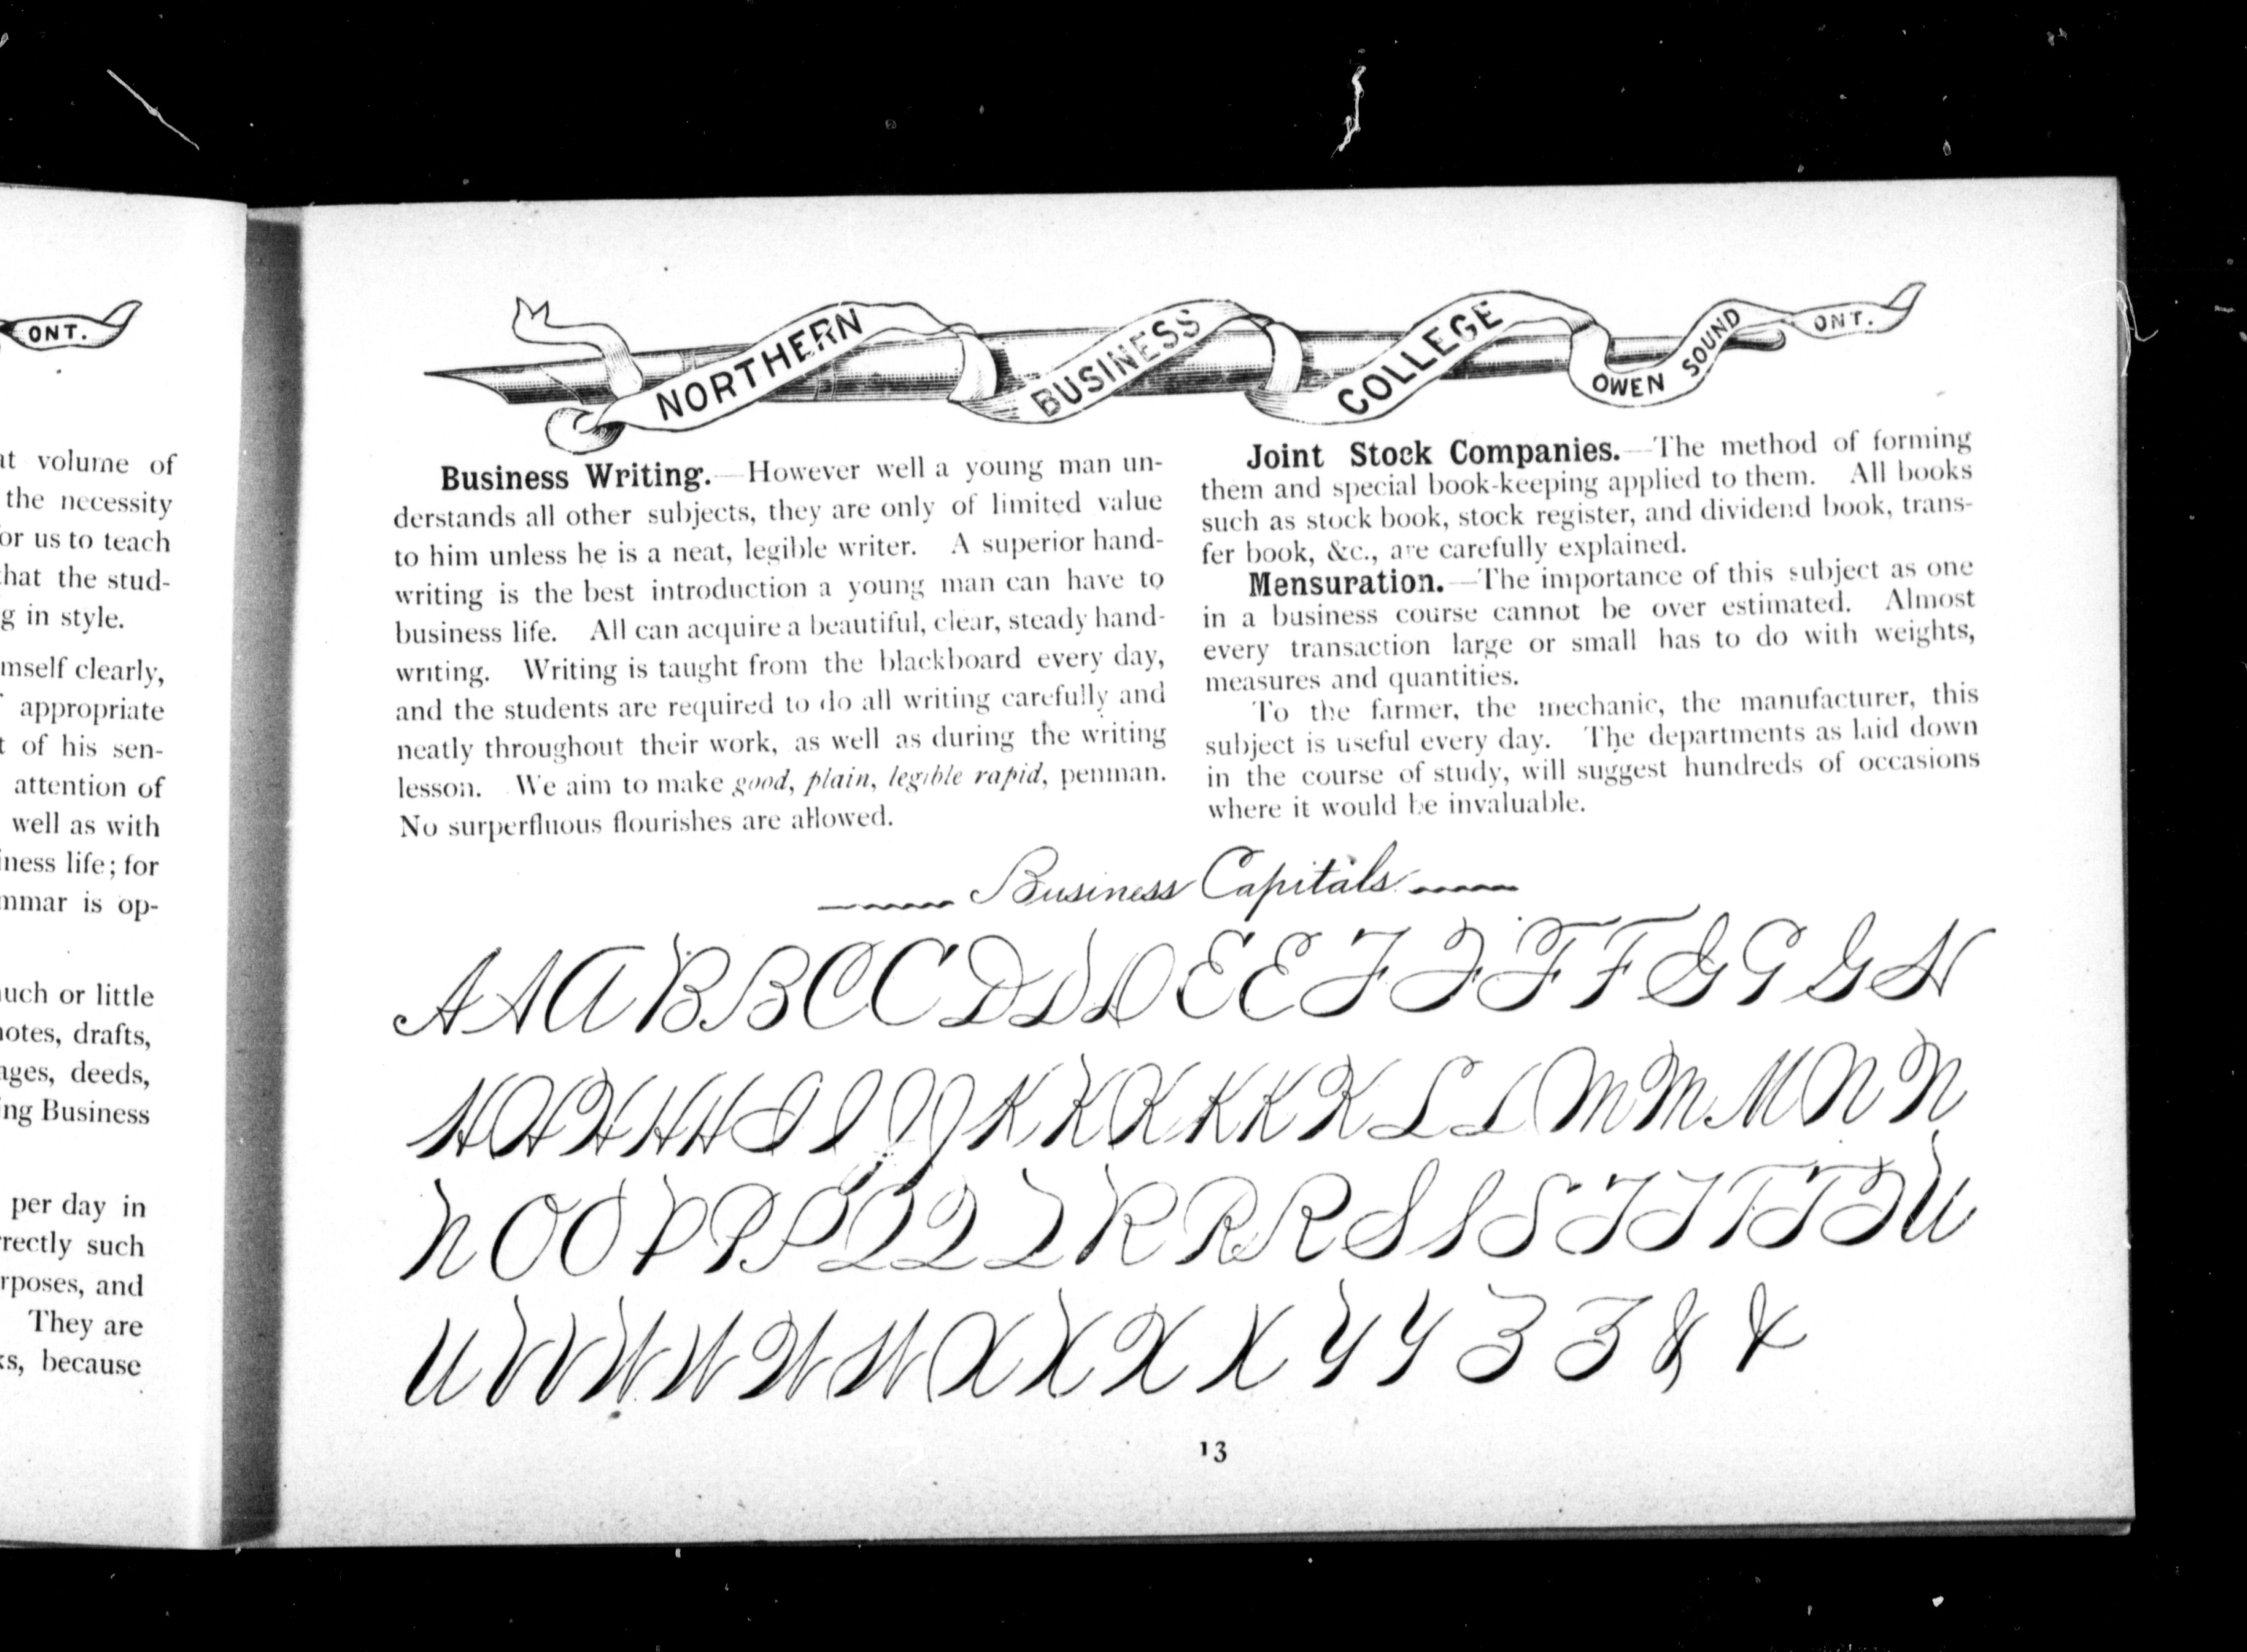 ONT.
at volume of
the necessity
or us to teach
that the stud-
g in style.
mself clearly,
appropriate
t of his sen-
attention of
well as with
iness life; for
mmar is op-
uch or little
notes, drafts,
ages, deeds,
ing Business
per day in
rrectly such
rposes, and
They are
ks, because
NORTHERN BUSINESS COLLEGE OWEN SOUND ONT.
Business Writing.—However well a young man un-
derstands all other subjects, they are only of limited value
to him unless he is a neat, legible writer. A superior hand-
writing is the best introduction a young man can have to
business life. All can acquire a beautiful, clear, steady hand-
writing. Writing is taught from the blackboard every day,
and the students are required to do all writing carefully and
neatly throughout their work, as well as during the writing
lesson. We aim to make good, plain, legible rapid, penman.
No surperfluous flourishes are allowed.
Joint Stock Companies.—The method of forming
them and special book-keeping applied to them. All books
such as stock book, stock register, and dividend book, trans-
fer book, &c., are carefully explained.
Mensuration.—The importance of this subject as one
in a business course cannot be over estimated. Almost
every transaction large or small has to do with weights,
measures and quantities.
To the farmer, the mechanic, the manufacturer, this
subject is useful every day. The departments as laid down
in the course of study, will suggest hundreds of occasions
where it would be invaluable.
Business Capitals
A A A B B C C D D D E E F F F F G G G H
H H H H H I I J J K K K K K K L L M M M N N
N O O P P P Q Q Q R R R S S S T T T T T U
U V V W W W W X X X X Y Y Z Z & &
13